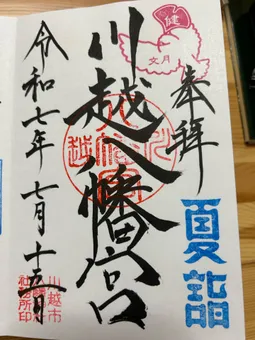 健
文月
奉拝
夏詣
川越八幡宮
令和七年七月十五日
川越市
社務所印